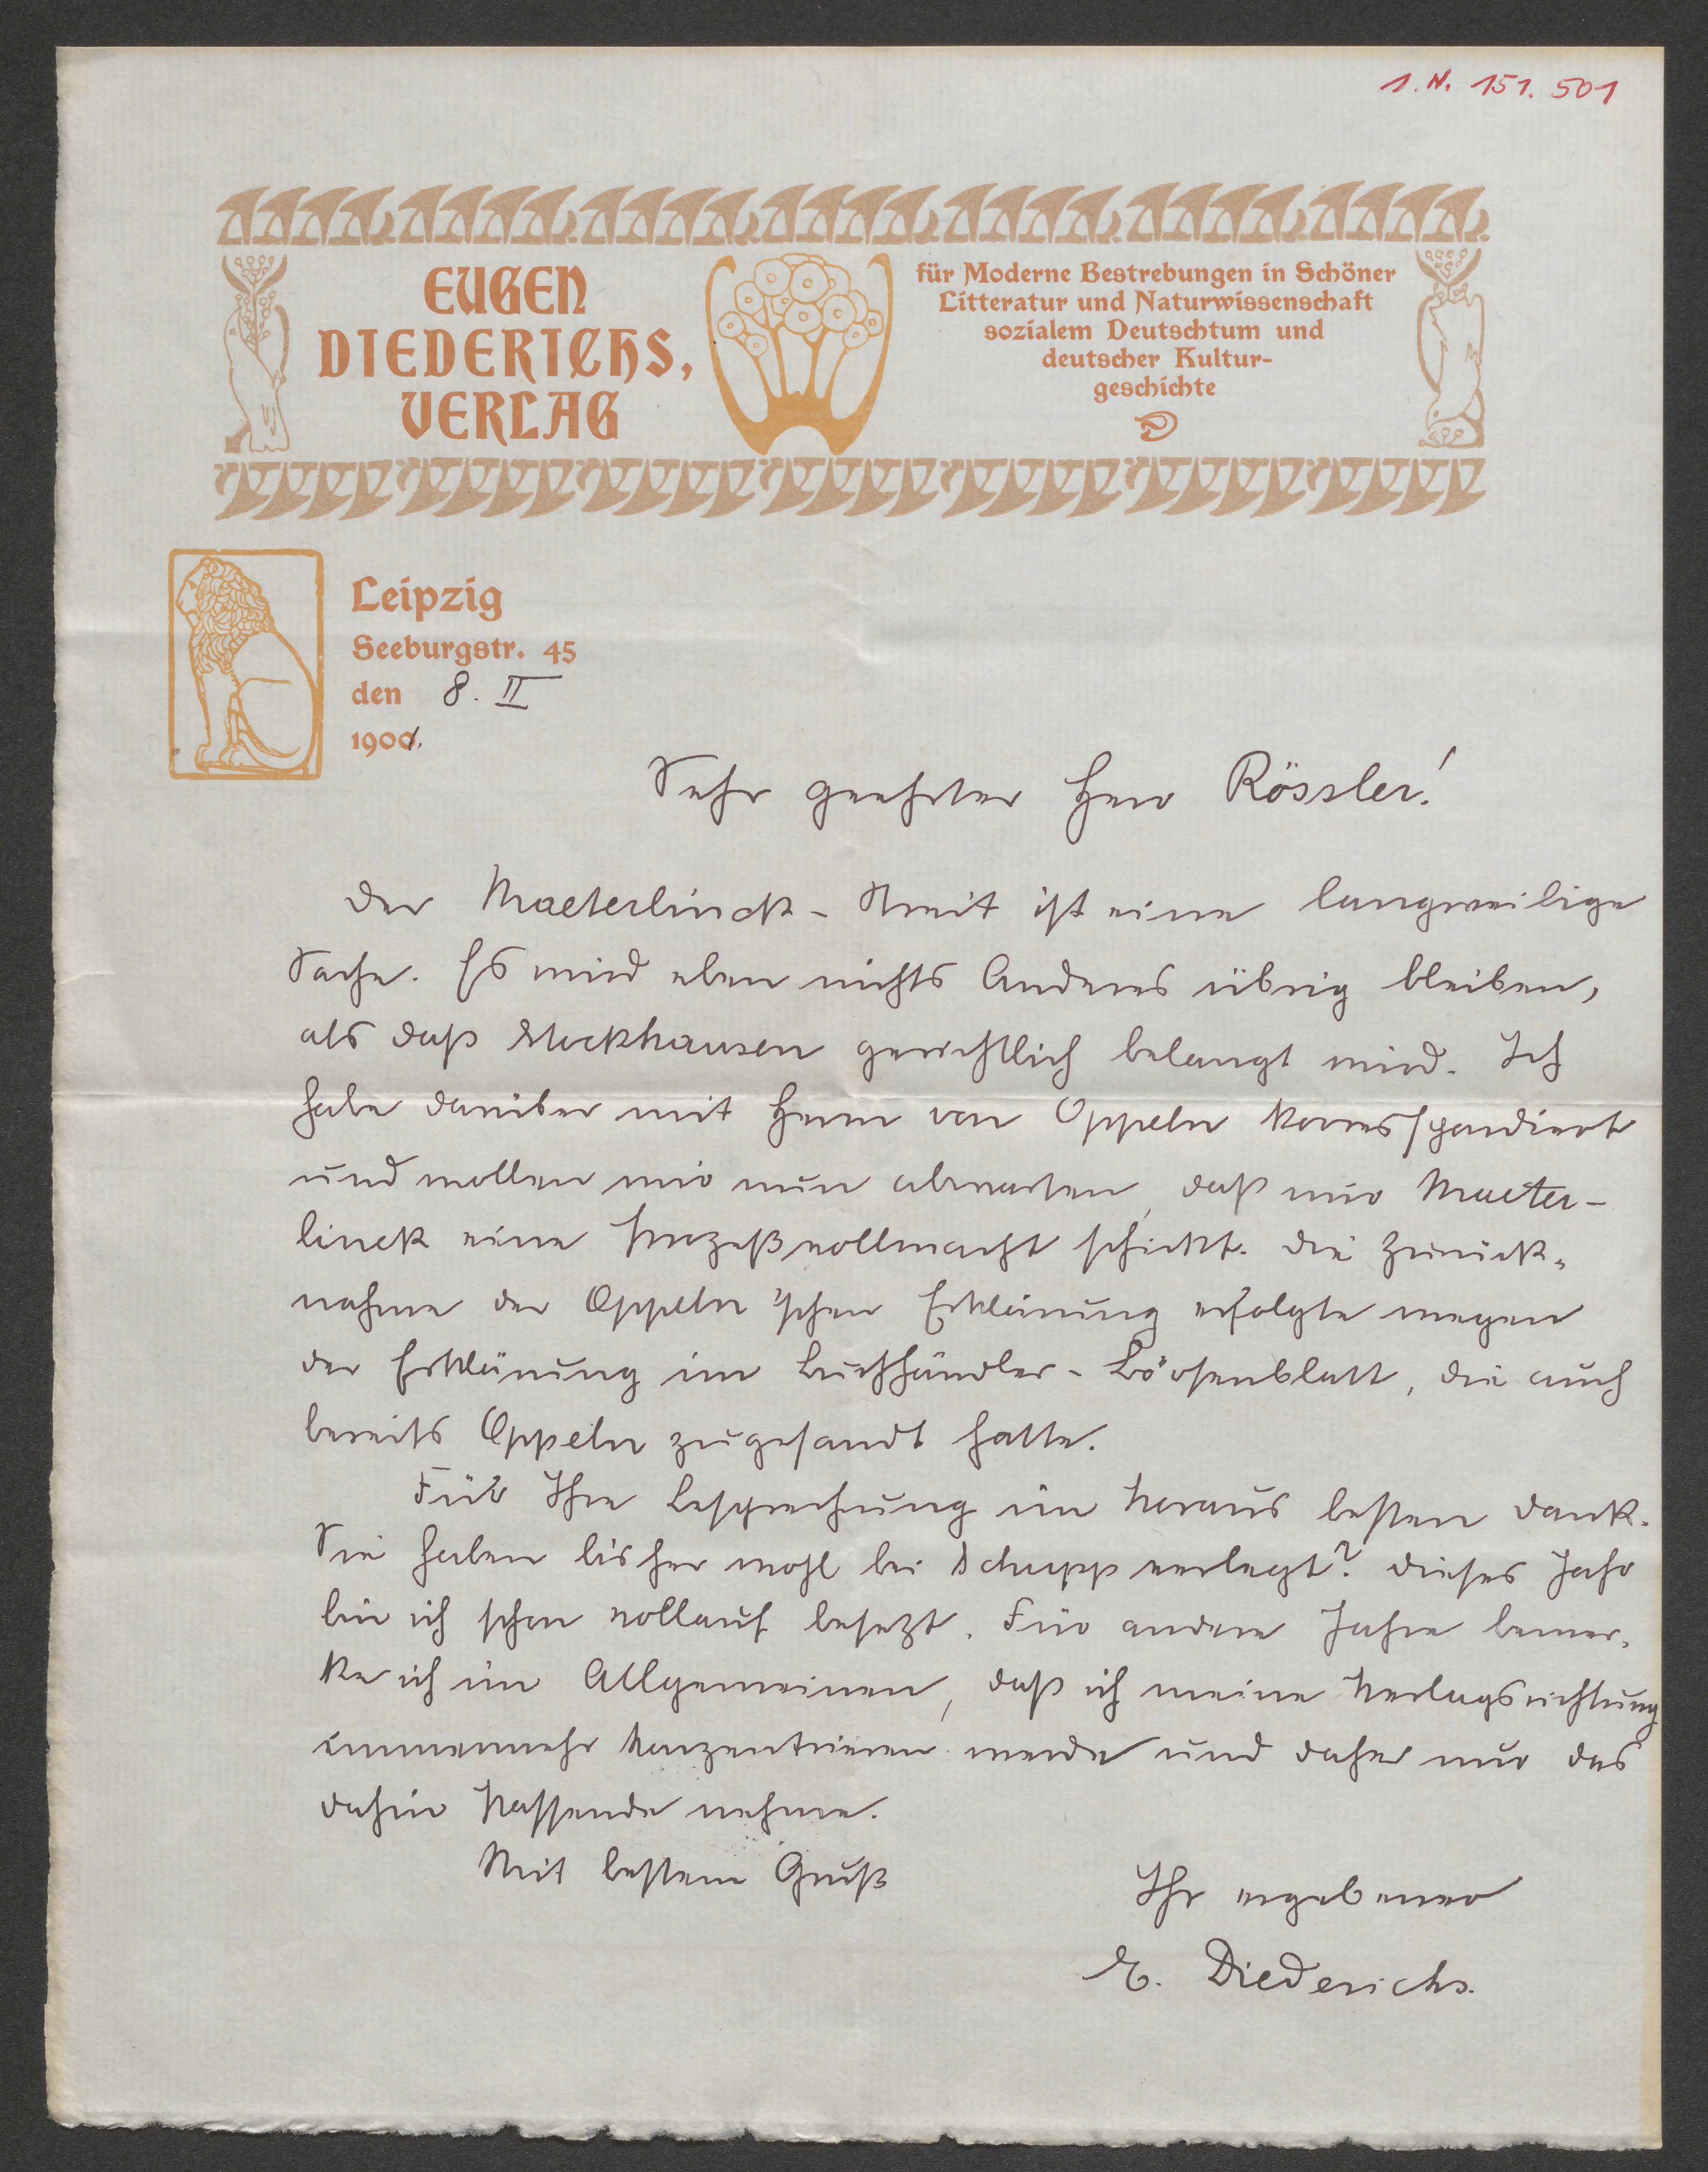 I. N. 151.501
EUGEN
DIEDERICHS,
VERLAG
für Moderne Bestrebungen in Schöner
Litteratur und Naturwissenschaft
sozialem Deutschtum und
deutscher Kultur-
geschichte
Leipzig
Seeburgstr. 45
den 8. II
1901.
Sehr geehrter Herr Rössler!
Der Maeterlinck-Streit ist eine langweilige
Sache. Es wird eben nichts Anderes übrig bleiben,
als daß Stockhausen gerichtlich belangt wird. Ich
habe darüber mit Herrn von Oppeln korrespondiert
und wollen wir nun abwarten, daß mir Maeter-
linck eine Prozeßvollmacht schickt. Die Zurück-
nahme der Oppeln'schen Erklärung erfolgte wegen
der Erklärung im Buchhändler-Börsenblatt, die auch
bereits Oppeln zugesandt hatte.
Für Ihre Besprechung im Voraus besten Dank.
Sie haben bisher wohl bei Schupp verlegt? Dieses Jahr
bin ich schon vollauf besetzt. Für andere Jahre bemer-
ke ich im Allgemeinen, daß ich meine Verlagsrichtung
immermehr konzentrieren werde und daher nur das
dahin Passende nehme.
Mit bestem Gruß
Ihr ergebener
E. Diederichs.